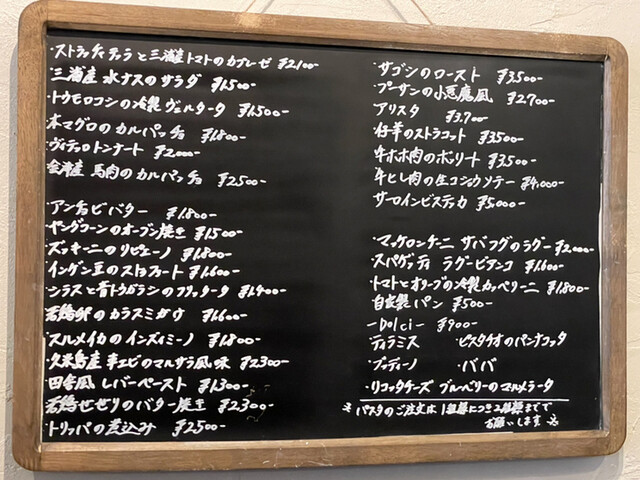 ・ストラッチャテッラと三浦産トマトのカプレーゼ ¥2100-
・三浦産 水ナスのサラダ ¥1500-
・トウモロコシの冷製ヴェルタータ ¥1,500-
・本マグロのカルパッチョ ¥1,800-
・ヴィテッロトンナート ¥2,000-
・会津産 馬肉のカルパッチョ ¥2500-
・アンチョビバター ¥1,800-
・ヤングコーンのオーブン焼き ¥1,500
・ズッキーニのリピエーノ ¥1,800-
・インゲン豆のストゥファート ¥1,600-
・シラスと青トウガラシのフリッタータ ¥1,400-
若鶏のカラスミガケ ¥1,600-
・スルメイカのインズィミーノ ¥1,800-
・久米島産 車エビのマルサラ風味 ¥2300-
・田舎風 レバーペースト ¥1,300-
・若鶏せせりのバター焼き ¥2300-
・トリッパの煮込み ¥2500-
・サゴシのロースト ¥3,500-
・プーサンの小悪魔風 ¥2700-
・アリスタ ¥3,700-
・仔羊のストラコット ¥3500-
・牛ホホ肉のボリート ¥3500-
・牛ヒレ肉の生コショウソテー ¥4,000-
・サーロインビステッカ ¥5,000-
・マッケロンチーニ サバフグのラグー ¥2,000-
・スパゲッティ ラグービアンコ ¥1,600-
・トマトとオリーブの冷製カッペリーニ ¥1,800-
・自家製パン ¥500-
-Dolci- ¥900-
ティラミス ・ピスタチオのパンナコッタ
ブディーノ ・ババ
・リコッタチーズ ブルーベリーのマルメラータ
※パスタのご注文は1組様につき2種類までで
お願いします※